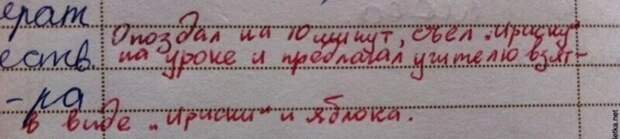 ерат
Опоздал на 10 минут, съел „Ириску"
еств. на уроке и предлагал учителю взят-
-ра
в виде „Ириски" и яблока.